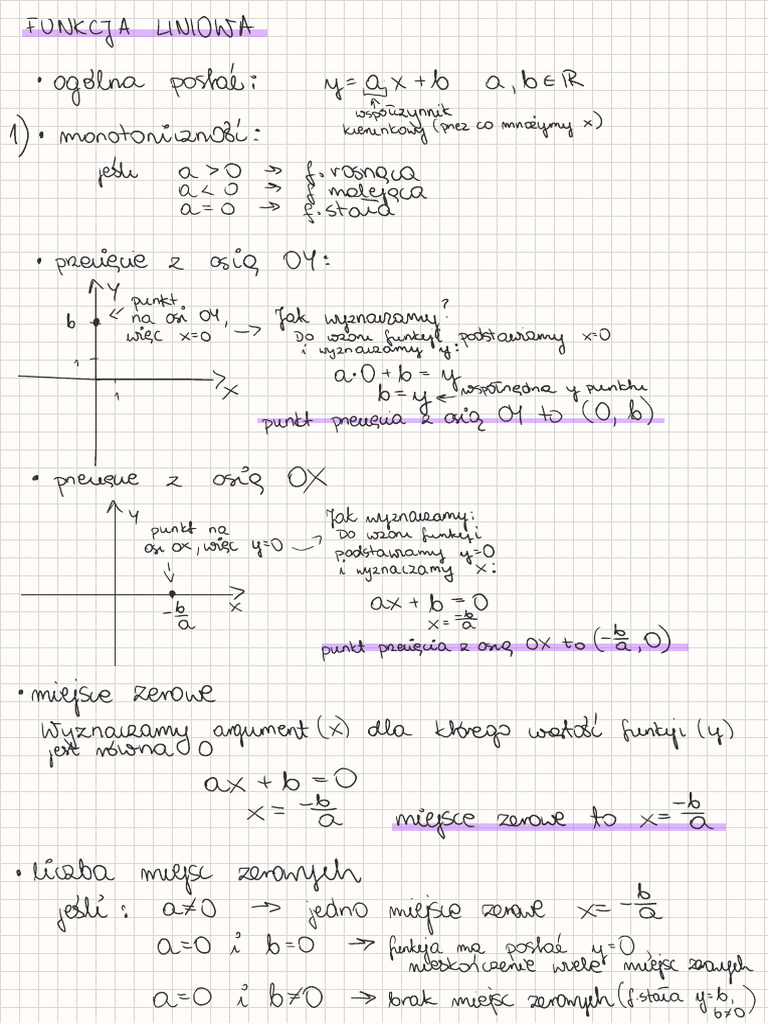 FUNKCJA LINIOWA
• ogólna postać: y = a x + b   a, b ∈ ℝ
współczynnik
kierunkowy (przez co mnożymy x)
1) • monotoniczność:
jeśli a > 0 → f. rosnąca
a < 0 → f malejąca
a = 0 → f. stała
• przecięcie z osią OY:
y
b
punkt
na osi OY,
więc x=0
1
1
x
Jak wyznaczamy?
Do wzoru funkcji podstawiamy x=0
i wyznaczamy y:
a·0 + b = y
b = y ← współrzędna y punktu
punkt przecięcia z osią OY to (0, b)
• przecięcie z osią OX
y
punkt na
osi OX, więc y=0
-b/a
x
Jak wyznaczamy:
Do wzoru funkcji
podstawiamy y=0
i wyznaczamy x:
ax + b = 0
x = -b/a
punkt przecięcia z osią OX to (-b/a, 0)
• miejsce zerowe
Wyznaczamy argument (x) dla którego wartość funkcji (y)
jest równa 0
ax + b = 0
x = -b/a
miejsce zerowe to x = -b/a
• liczba miejsc zerowych
jeśli: a≠0 → jedno miejsce zerowe x = -b/a
a=0 i b=0 → funkcja ma postać y=0,
nieskończenie wiele miejsc zerowych
a=0 i b≠0 → brak miejsc zerowych (f. stała y=b,
b≠0)